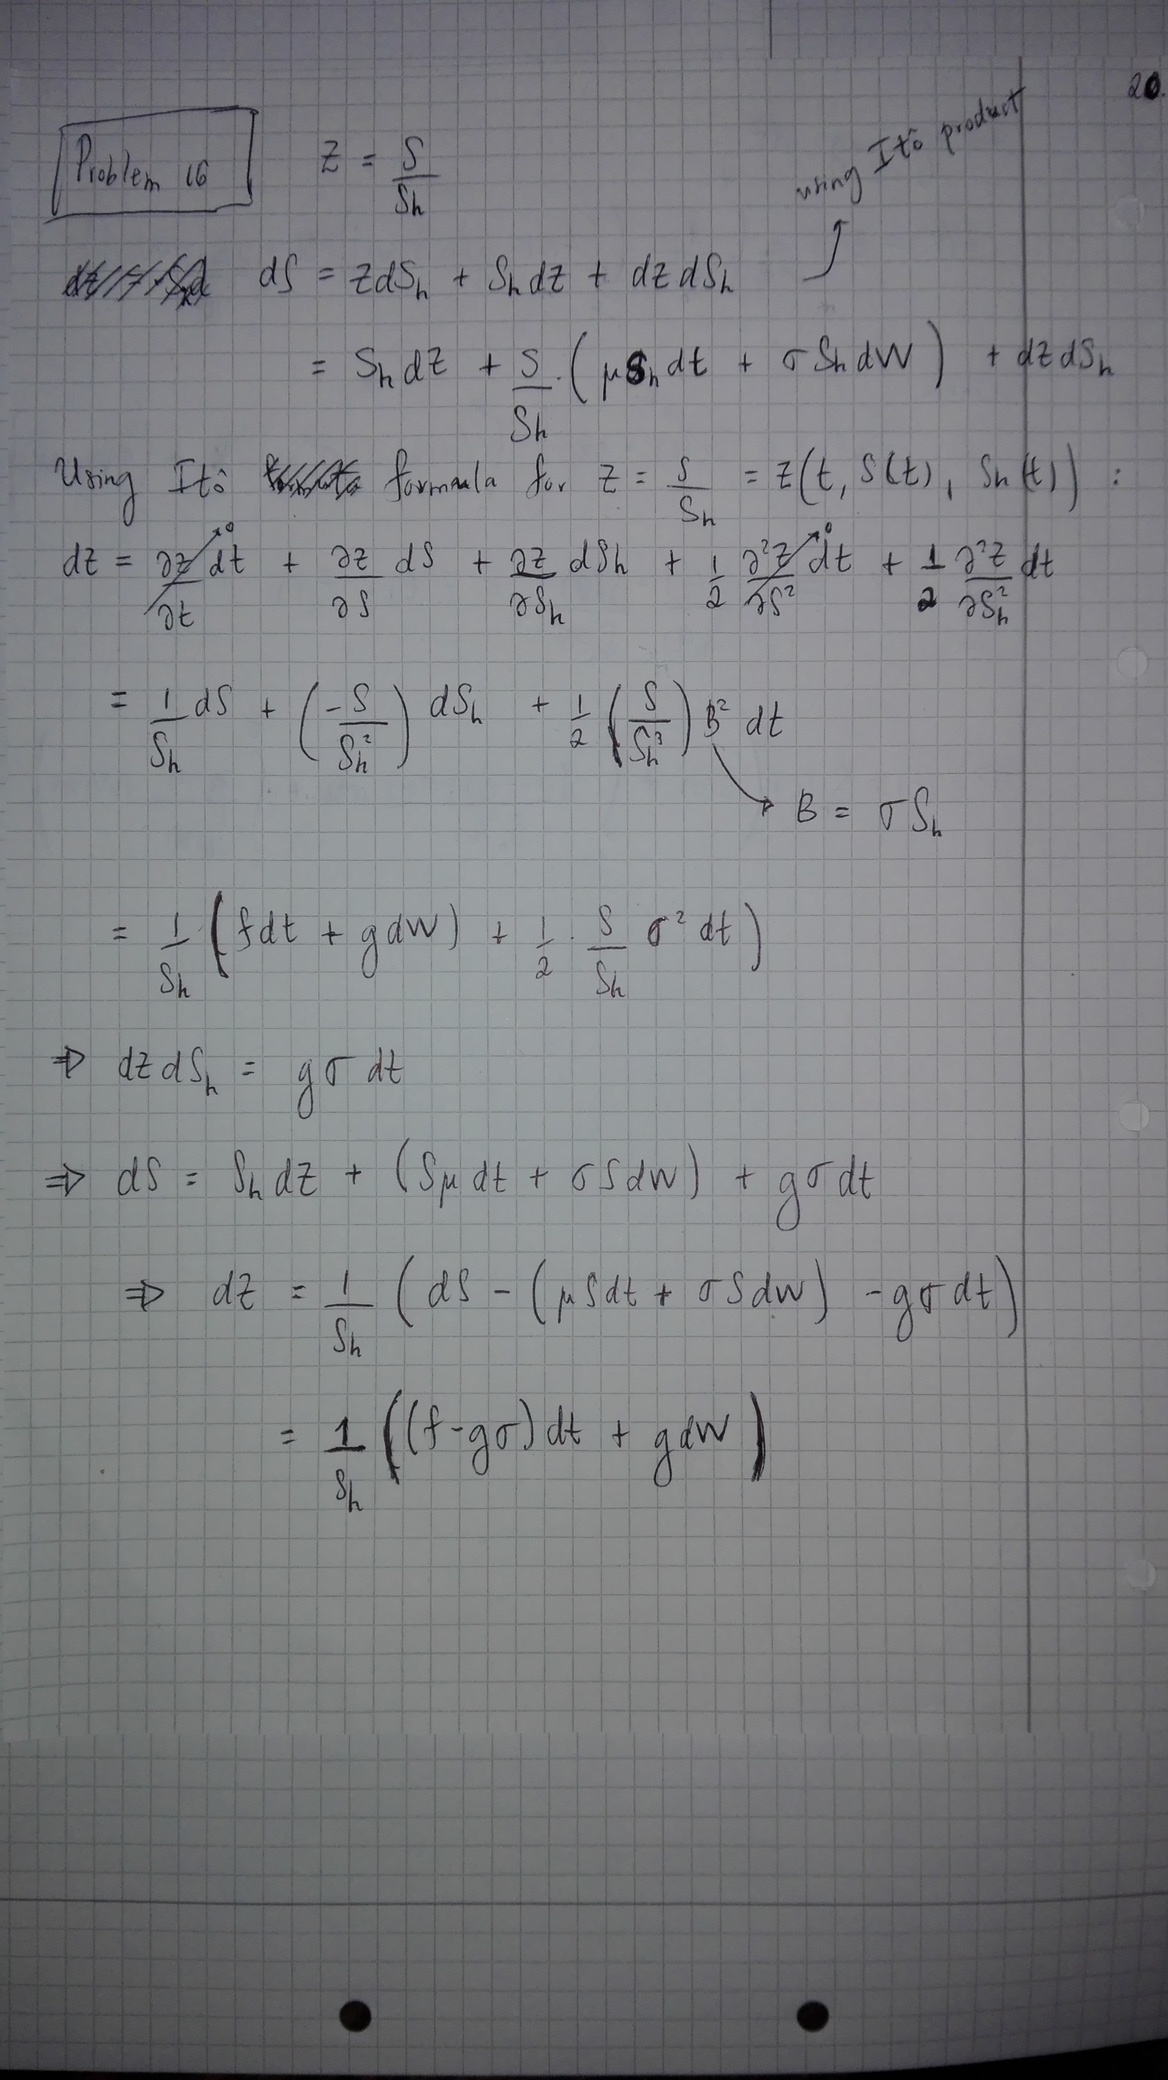 20.
Problem 16
z = S/Sh
using Itô product
dS = zdSh + Shdz + dzdSh
= Sh dz + S/Sh · (μSh dt + σ Sh dW) + dzdSh
Using Itô formula for z = S/Sh = z(t, S(t), Sh(t)) :
dz = ∂z/∂t dt →0 + ∂z/∂S dS + ∂z/∂Sh dSh + 1/2 ∂²z/∂S² dt →0 + 1/2 ∂²z/∂Sh² dt
= 1/Sh dS + (-S/Sh²) dSh + 1/2 (S/Sh³) B² dt
B = σSh
= 1/Sh (fdt + gdW) + 1/2 · S/Sh σ² dt)
⇒ dzdSh = gσ dt
⇒ dS = Sh dz + (Sμ dt + σSdW) + gσdt
⇒ dz = 1/Sh (dS - (μSdt + σSdW) - gσ dt)
= 1/Sh ((f-gσ)dt + gdW)